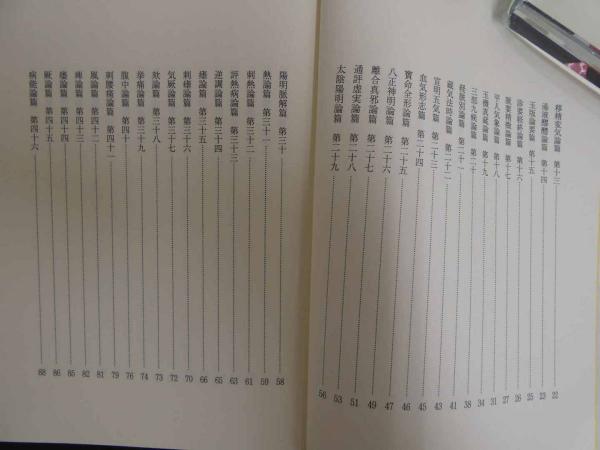 移精変気論篇 第十三 22
湯液醪醴論篇 第十四 23
玉版論要篇 第十五 25
診要経終論篇 第十六 26
脈要精微論篇 第十七 27
平人気象論篇 第十八 31
玉機真蔵論篇 第十九 34
三部九候論篇 第二十 38
経脈別論篇 第二十一 41
蔵気法時論篇 第二十二 41
宣明五気篇 第二十三 43
血気形志篇 第二十四 45
宝命全形論篇 第二十五 46
八正神明論篇 第二十六 47
離合真邪論篇 第二十七 49
通評虚実論篇 第二十八 51
太陰陽明論篇 第二十九 53
56
陽明脈解篇 第三十 58
熱論篇 第三十一 59
刺熱論篇 第三十二 61
評熱病論篇 第三十三 63
逆調論篇 第三十四 65
瘧論篇 第三十五 66
刺瘧論篇 第三十六 70
気厥論篇 第三十七 72
欬論篇 第三十八 73
挙痛論篇 第三十九 74
腹中論篇 第四十 76
刺腰痛論篇 第四十一 79
風論篇 第四十二 81
痺論篇 第四十三 82
痿論篇 第四十四 85
厥論篇 第四十五 86
病能論篇 第四十六 88